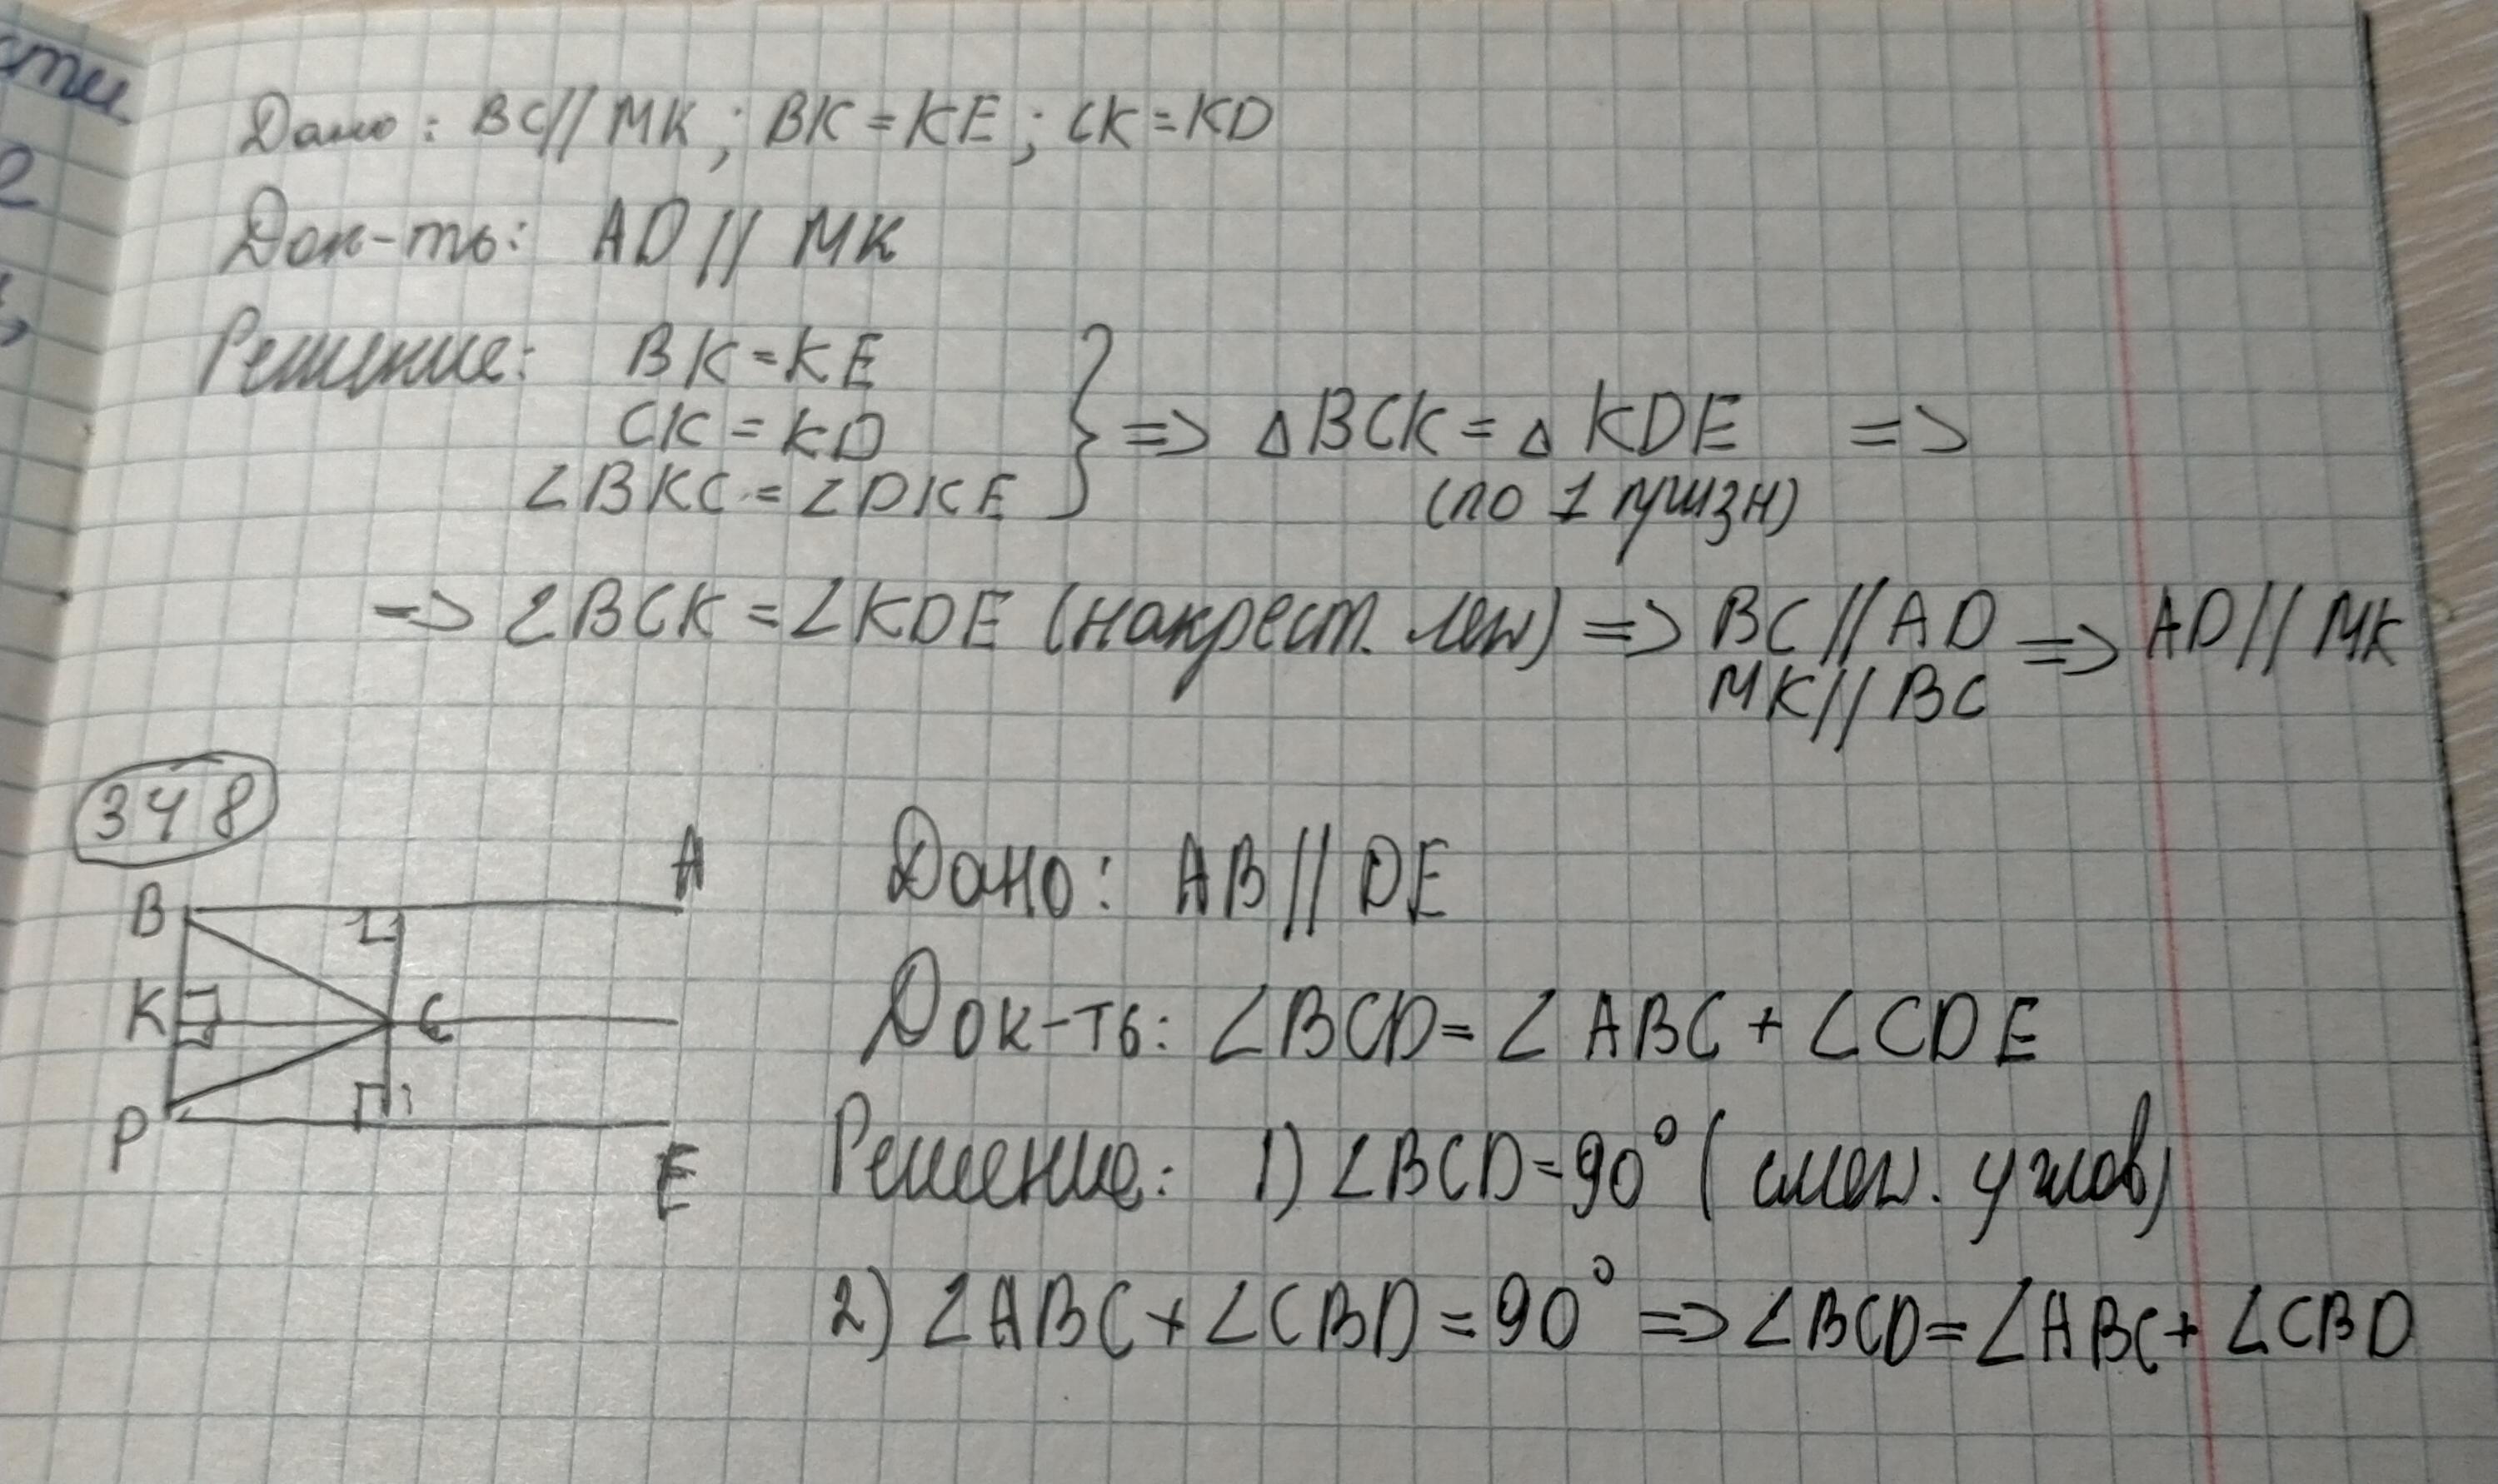 сти
е
Дано: BC // MK; BK = KE; CK = KD
Док-ть: AD // MK
Решение: BK = KE
CK = KD
∠BKC = ∠DKE
=> △BCK = △KDE =>
(по 1 призн)
=> ∠BCK = ∠KDE (накрест. леж) => BC // AD => AD // MK
MK // BC
348
A
B
K
C
P
E
Дано: AB // DE
Док-ть: ∠BCD = ∠ABC + ∠CDE
Решение: 1) ∠BCD = 90° (смеж. углов)
2) ∠ABC + ∠CBD = 90° => ∠BCD = ∠ABC + ∠CBD